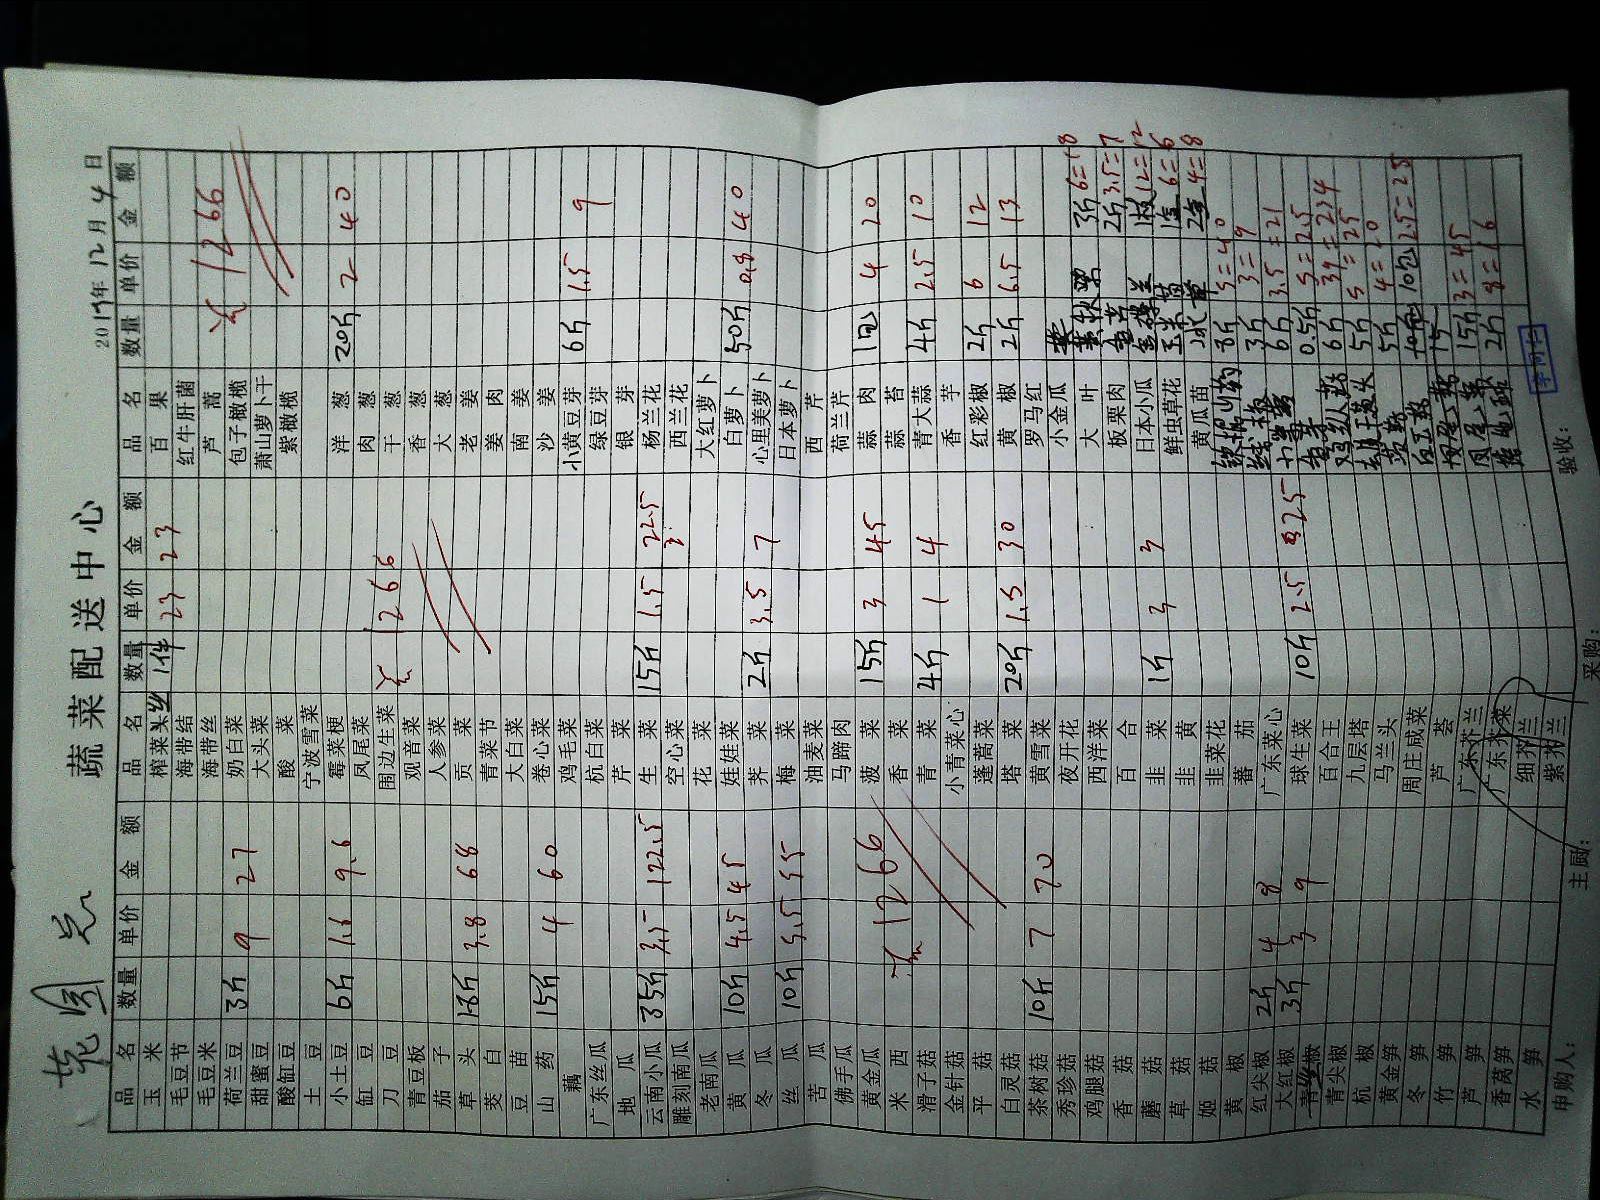 蔬菜配送中心
2017年12月4日
品名 数量 单价 金额
玉米
毛豆节
毛豆米
荷兰豆 3斤 9 27
甜蜜豆
酸缸豆
土豆
小土豆 6斤 1.6 9.6
缸豆
刀豆
青豆板
茄子
草头 18斤 3.8 68
茭白
豆苗
山药 15斤 4 60
藕
广东丝瓜
地瓜
云南小瓜 35斤 3.5 122.5
雕刻南瓜
老南瓜
黄瓜 10斤 4.5 45
冬瓜
丝瓜 10斤 5.5 55
苦瓜
佛手瓜
黄金瓜
米西 1266
滑子菇
金针菇
平菇
白灵菇
茶树菇 10斤 7 70
秀珍菇
鸡腿菇
香菇
蘑菇
草菇
姬菇
黄椒
红尖椒 2斤 4 8
大红椒 3斤 3 9
青丝椒
青尖椒
杭椒
黄金笋
冬笋
竹笋
芦笋
香莴笋
水笋
品名 数量 单价 金额
榨菜丝 1件 23 23
海带结
海带丝
奶白菜
大头菜
酸菜
宁波雪菜
霉菜梗
凤尾菜
围边生菜 1266
观音菜
人参菜
贡菜
青菜节
大白菜
卷心菜
鸡毛菜
杭白菜
芹菜
生菜 15斤 1.5 22.5
空心菜
花菜
娃娃菜
荠菜 2斤 3.5 7
梅菜
油麦菜
马蹄肉
菠菜 15斤 3 45
香菜
青菜 4斤 1 4
小青菜心
蓬蒿菜
塔菜 20斤 1.5 30
黄雪菜
夜开花
西洋菜
百合
韭菜 1斤 3 3
韭黄
韭菜花
蕃茄
广东菜心
球生菜 10斤 2.5 325
百合王
九层塔
马兰头
周庄咸菜
芦荟
广东芥兰
广东芥菜
细芥兰
紫芥兰
品名 数量 单价 金额
百果
红牛肝菌
芦蒿 1266
包子橄榄
萧山萝卜干
紫橄榄
洋葱 20斤 2 40
肉葱
干葱
香葱
大葱
老姜
姜肉
南姜
沙姜
小黄豆芽 6斤 1.5 9
绿豆芽
银芽
杨兰花
西兰花
大红萝卜
白萝卜 50斤 0.8 40
心里美萝卜
日本萝卜
西芹
荷兰芹
蒜肉 1包 4 20
蒜苔
青大蒜 4斤 2.5 10
香芋
红彩椒 2斤 6 12
黄椒 2斤 6.5 13
罗马红
小金瓜
大叶 3斤 6=18
板栗肉 2斤 3.5=7
日本小瓜 1枝 12=12
鲜虫草花 1盒 6=6
黄瓜苗 2盒 4=8
铁棍山药 8斤 5=40
3斤 3=9
6斤 3.5=21
0.5斤 5=2.5
6斤 39=234
5斤 5=25
5斤 4=20
10包 2.5=25
15斤 3=45
2斤 8=16
申购人：
主厨：
采购：
验收：